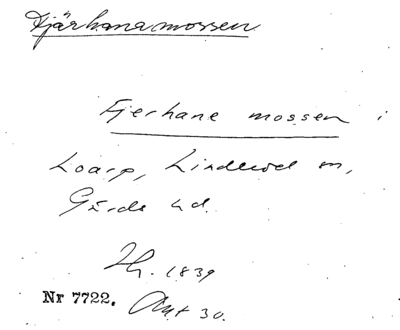 Tjärhanamossen
Fjerhane mossen i
Loarp, Linderöd sn,
Gärds hd.
Th. 1839
Nr 7722. Akt 30.